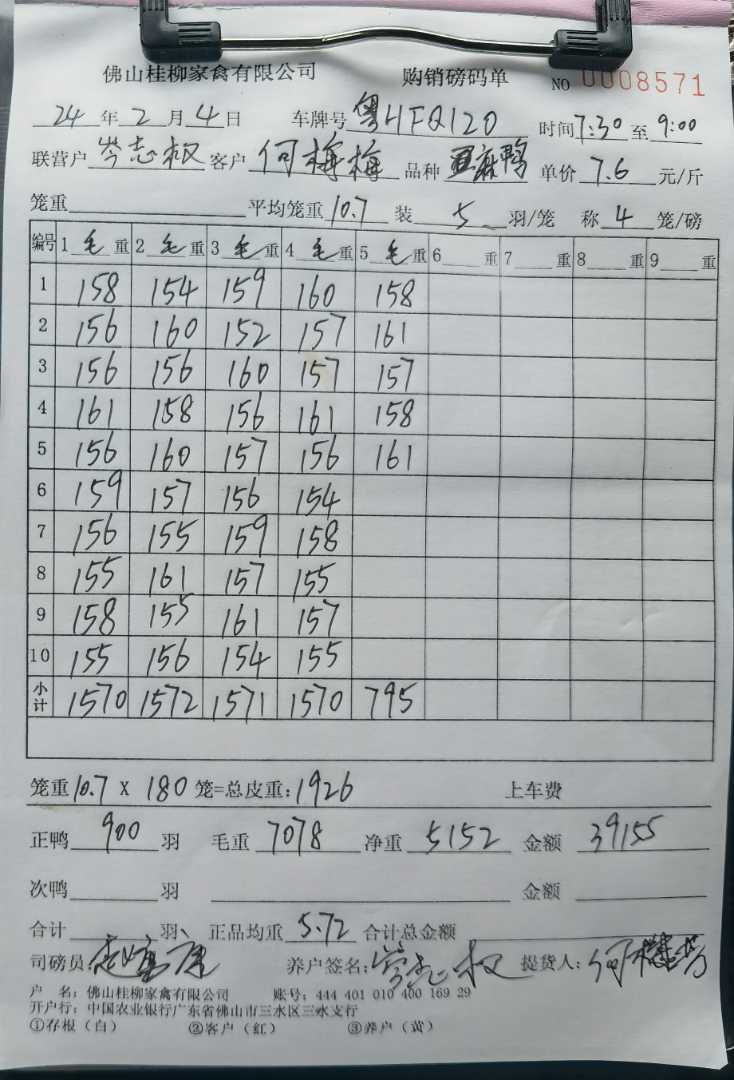 佛山桂柳家禽有限公司 购销磅码单 NO 0008571
24年2月4日 车牌号 粤HFQ120 时间7:30至9:00
联营户 岑志权 客户 何梅梅 品种 麻鸭 单价 7.6 元/斤
笼重 平均笼重 10.7 装 5 羽/笼 称 4 笼/磅
编号 1毛重 2毛重 3毛重 4毛重 5毛重 6 重 7 重 8 重 9 重
1 158 154 159 160 158
2 156 160 152 157 161
3 156 156 160 157 157
4 161 158 156 161 158
5 156 160 157 156 161
6 159 157 156 154
7 156 155 159 158
8 155 161 157 155
9 158 155 161 157
10 155 156 154 155
小计 1570 1572 1571 1570 795
笼重10.7 X 180 笼=总皮重:1926 上车费
正鸭 900 羽 毛重 7078 净重 5152 金额 39155
次鸭 羽 金额
合计 羽 正品均重 5.72 合计总金额
司磅员: 养户签名: 岑志权 提货人: 何
户 名: 佛山桂柳家禽有限公司 账号: 444 401 010 400 169 29
开户行: 中国农业银行广东省佛山市三水区三水支行
①存根(白) ②客户(红) ③养户(黄)